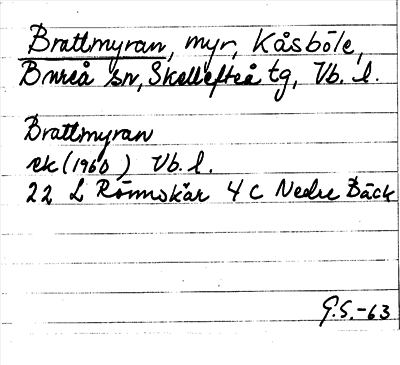 Brattmyran, myr, Kåsböle,
Bureå sn, Skellefteå tg, Vb. l.
Brattmyran
ek (1960) Vb. l.
22 L Rönnskär 4 c Nedre Bäck
G.S.-63